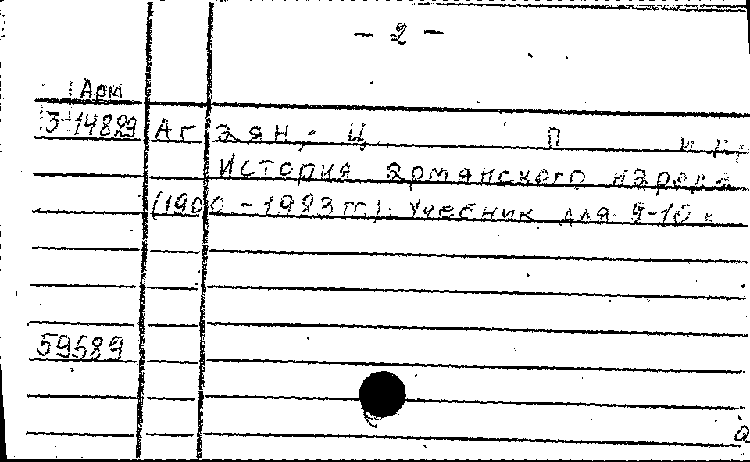 - 2 -
Арм
3-14829 Агаян, Ц. П. и др.
История армянского народа
(1900-1983 гг.). Учебник для 9-10 к
59689